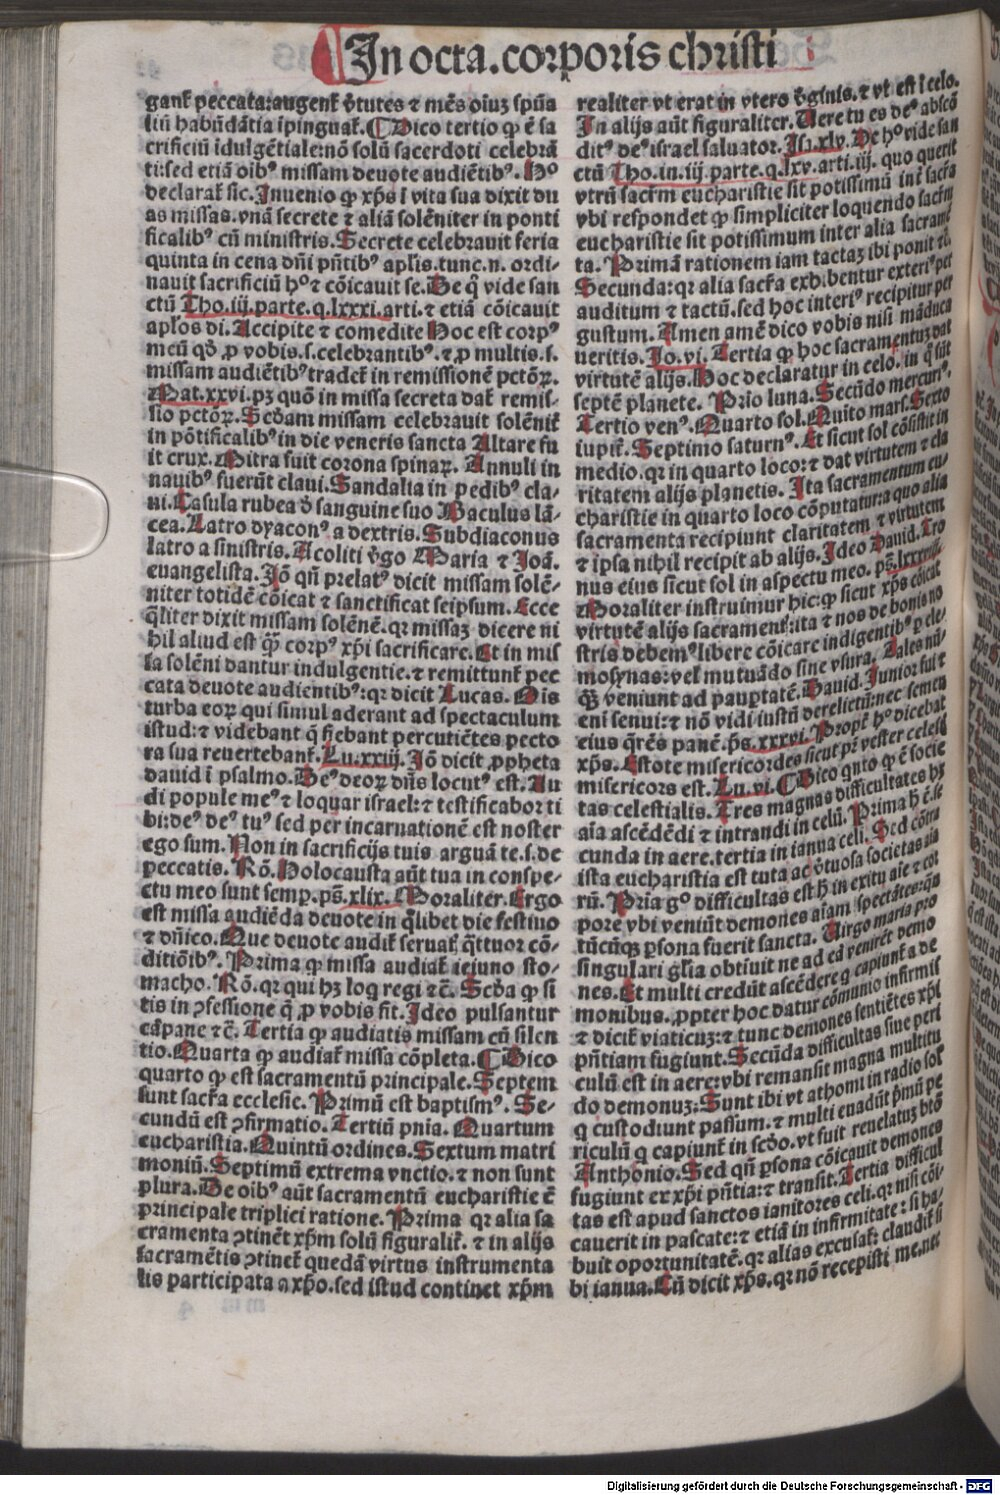 In octa. corporis christi
gant̄ peccata:augent̄ v̄tutes ⁊ mēs oiuꝫ spūa
liū habūdātia īpinguat̄. ¶ Dico tertio ꝙ ē sa
crificiū īdulgētiale:nō solū sacerdoti celebrā
ti:sed etiā oibꝰ missam deuote audiētibꝰ. Hꝰ
declarat̄ sic. Inuenio ꝙ xp̄s ī vita sua dixit du
as missas. vnā secrete ⁊ aliā solēniter in ponti
ficalibꝰ cū ministris. Secrete celebrauit feria
quinta in cena dn̄i pn̄tibꝰ apl̄is. tunc .n. ordi-
nauit sacrificiū hꝰ ⁊ cōicauit se. De q̄ vide san
ctū Tho. iij. parte. q. lxxxi. arti. ⁊ etiā cōicauit
apl̄os di. Accipite ⁊ comedite Hoc est corpꝰ
meū qd̄ ꝓ vobis .s. celebrantibꝰ. ⁊ ꝓ multis .s.
missam audiētibꝰ tradet̄ in remissionē pctōꝝ.
Mat. xxvi. pꝫ quō in missa secreta dat̄ remis-
sio pctōꝝ. Scd̄am missam celebrauit solēnit̄
in pōtificalibꝰ in die veneris sancta Altare fu
it crux. Mitra fuit corona spinaꝝ. Annuli in
nauibꝰ fuerūt claui. Sandalia in pedibꝰ cla-
ui. Casula rubea d̄ sanguine suo Baculus lā-
cea. Latro dyaconꝰ a dextris. Subdiaconus
latro a sinistris. Acoliti v̄go Maria ⁊ Joā.
euangelista. Iō qn̄ prelatꝰ dicit missam solē-
niter totidē cōicat ⁊ sanctificat seipsum. Ecce
q̄liter dixit missam solēnē. qr missaꝫ dicere ni
hil aliud est q̄ꝫ corpꝰ xp̄i sacrificare. Et in mis
sa solēni dantur indulgentie. ⁊ remittunt̄ pec
cata deuote audientibꝰ: qr dicit Lucas. Ois
turba eoꝝ qui simul aderant ad spectaculum
istud: ⁊ videbant q̄ fiebant percutiētes pecto
ra sua reuertebant̄. Lu. xxiij. Iō dicit ꝓpheta
dauid ī psalmo. Deꝰ deoꝝ dn̄s locutꝰ est. Au
di popule meꝰ ⁊ loquar israel: ⁊ testificabor ti
bi: deꝰ deꝰ tuꝰ sed per incarnationē est noster
ego sum. Non in sacrificijs tuis arguā te .s. de
peccatis. Rō. Holocausta aūt tua in conspe-
ctu meo sunt semꝑ. ps̄. xlix. Moraliter. Ergo
est missa audiēda deuote in q̄libet die festiuo
⁊ dn̄ico. Que deuote audit̄ seruat̄ q̄ttuor cō-
ditiōibꝰ. Prima ꝙ missa audiat̄ ieiuno sto-
macho. Rō. qr qui hꝫ loq̄ regi ⁊c̄. Scd̄a ꝙ si
tis in ꝯfessione q̄ ꝓ vobis fit. Ideo pulsantur
cāpane ⁊c̄. Tertia ꝙ audiatis missam cū silen
tio. Quarta ꝙ audiat̄ missa cōpleta. ¶ Dico
quarto ꝙ est sacramentū principale. Septem
sunt sacr̄a ecclesie. Primū est baptismꝰ. Se-
cundū est ꝯfirmatio. Tertiū pnīa. Quartum
eucharistia. Quintū ordines. Sextum matri
moniū. Septimū extrema vnctio. ⁊ non sunt
plura. De oibꝰ aūt sacramentū eucharistie ē
principale triplici ratione. Prima qr alia sa
cramenta ꝯtinēt xp̄m solū figuralit̄. ⁊ in alijs
sacramētis ꝯtinet̄ quedā virtus instrumenta
lis participata a xp̄o. sed istud continet xp̄m
realiter vt erat in vtero v̄ginis. ⁊ vt est ī celo.
In alijs aūt figuraliter. Uere tu es deꝰ abscō
ditꝰ deꝰ israel saluator. Isa. xlv. De hꝰ vide san
ctū Tho. in. iij. parte. q. lxv. arti. iij. quo querit
vtrū sacr̄m eucharistie sit potissimū int̄ sacr̄a
vbi respondet ꝙ simpliciter loquendo sacr̄m
eucharistie sit potissimum inter alia sacramē
ta. Primā rationem iam tactaꝫ ibi ponit ⁊c̄.
Secunda: qr alia sacr̄a exhibentur exteriꝰ per
auditum ⁊ tactū. sed hoc interiꝰ recipitur per
gustum. Amen amē dico vobis nisi māduca
ueritis. Jo. vi. Tertia ꝙ hoc sacramentuꝫ dat
virtutē alijs. Hoc declaratur in celo. in q̄ sūt
septē planete. Prīo luna. Secūdo mercuriꝰ.
Tertio venꝰ. Quarto sol. Quīto mars. Sexto
iupit̄. Septimo saturnꝰ. Et sicut sol cōsistit in
medio. qr in quarto loco: ⁊ dat virtutem ⁊ cla
ritatem alijs planetis. Ita sacramentum eu-
charistie in quarto loco cōputatur: a quo alia
sacramenta recipiunt claritatem ⁊ virtutem
⁊ ipsa nihil recipit ab alijs. Ideo Dauid. Tro
nus eius sicut sol in aspectu meo. ps̄. lxxxviij.
Moraliter instruimur hic: ꝙ sicut xp̄s cōicat
virtutē alijs sacrament̄: ita ⁊ nos de bonis no
stris debemꝰ libere cōicare indigentibꝰ ꝑ ele-
mosynas: vel̄ mutuādo sine vsura. Tales nū-
q̄ꝫ veniunt ad pauꝑtatē. Dauid. Junior fui ⁊
eni senui: ⁊ nō vidi iustū derelictū: nec semen
eius q̄rēs panē. ps̄. xxxvi. Propt̄ hꝰ dicebat
xp̄s. Estote misericordes sicut pr̄ vester celest
misericors est. Lu. vi. ¶ Dico qnto ꝙ ē socie
tas celestialis. Tres magnas difficultates hꝫ
aīa ascēdēdi ⁊ intrandi in celū. Prima h̄ ē. se
cunda in aere. tertia in ianua celi. Sed cōtra
ista eucharistia est tuta ac v̄tuosa societas aīa
rū. Prīa gꝰ difficultas est h̄ in exitu aīe ⁊ cor
pore vbi veniūt demones aīam spectātes: q̄n
tūcūqꝫ ꝑsona fuerit sancta. Uirgo maria pro
singulari gl̄ia obtīuit ne ad eā venirēt demo
nes. Et multi credūt ascēdere q̄ capiunt̄ a de
monibus. ꝓpter hoc datur cōmunio infirmis
⁊ dicit̄ viaticuꝫ: ⁊ tunc demones sentiētes xp̄i
pn̄tiam fugiunt. Secūda difficultas siue peri
culū est in aere: vbi remansit magna multitu
do demonuꝫ: Sunt ibi vt athomi in radio sol̄
q̄ custodiunt passum. ⁊ multi euadūt p̄mū pe
riculū q̄ capiunt̄ in scd̄o. vt fuit reuelatuꝫ btō
Anthonio. Sed qn̄ ꝑsona cōicauit demones
fugiunt ex xp̄i pn̄tia: ⁊ transit. Tertia difficul
tas est apud sanctos ianitores celi. qr nisi cōi-
cauerit in pascate: ⁊ etiā in infirmitate: si ha-
buit oportunitatē. qr alias excusat̄: claudit̄ si
bi ianua. Cū dicit xp̄s. qr nō recepisti me. nec
Digitalisierung gefördert durch die Deutsche Forschungsgemeinschaft - DFG